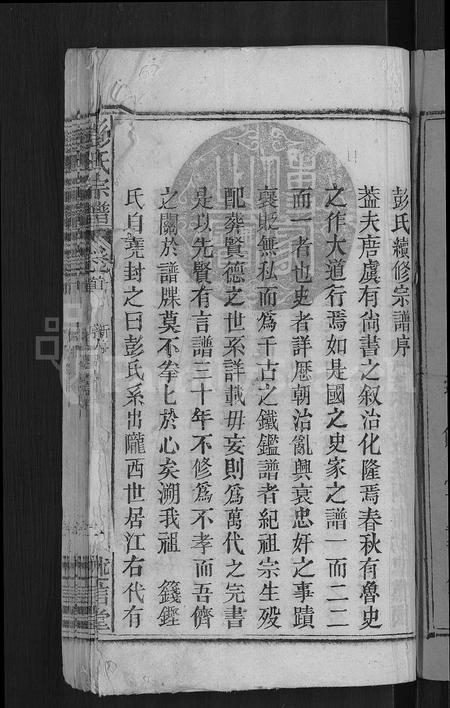 彭氏續修宗譜序
葢夫唐虞有尚書之叙治化隆焉春秋有魯史
之作大道行焉如是國之史家之譜一而二二
而一者也史者詳歷朝治亂興衰忠奸之事蹟
襃貶無私而爲千古之鐵鑑譜者紀祖宗生殁
配葬賢德之世系詳載毋妄則爲萬代之完書
是以先賢有言譜三十年不修爲不孝而吾儕
之關於譜牒莫不拳匕於心矣溯我祖 籛鏗
氏自堯封之曰彭氏系出隴西世居江右代有
彭氏宗譜 卷首 新序